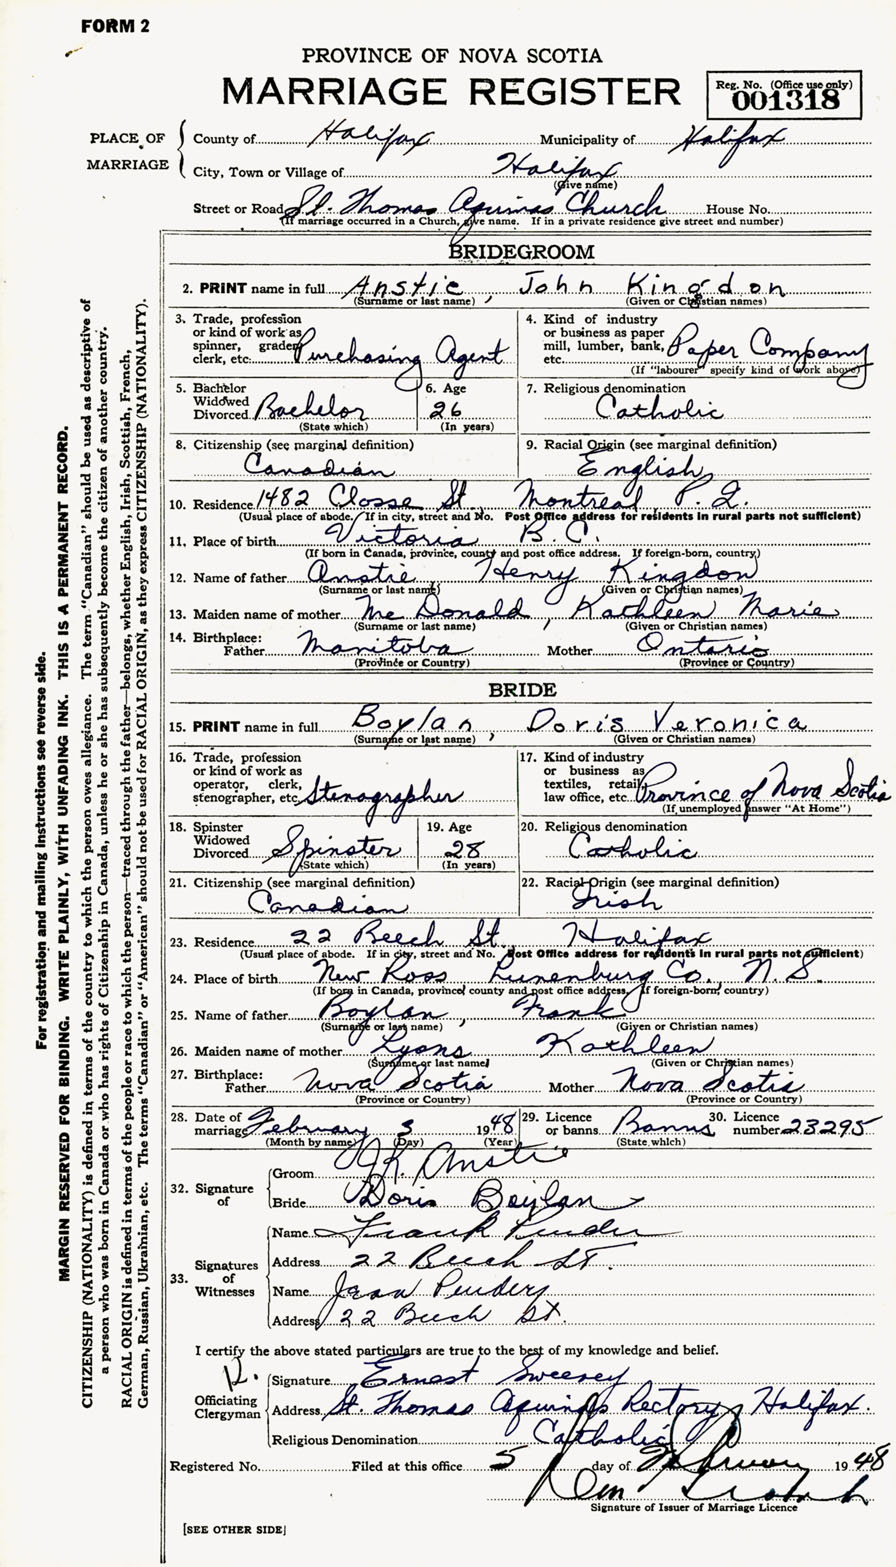 FORM 2
PROVINCE OF NOVA SCOTIA
MARRIAGE REGISTER
Reg. No. (Office use only)
001318
PLACE OF MARRIAGE
County of Halifax Municipality of Halifax
City, Town or Village of Halifax
(Give name)
Street or Road St. Thomas Aquinas Church House No.
(If marriage occurred in a Church, give name. If in a private residence give street and number)
BRIDEGROOM
2. PRINT name in full Anstie, John Kingdon
(Surname or last name) (Given or Christian names)
3. Trade, profession or kind of work as spinner, grader, clerk, etc. Purchasing Agent
4. Kind of industry or business as paper mill, lumber, bank, etc. Paper Company
(If "labourer" specify kind of work above)
5. Bachelor Widowed Divorced Bachelor
(State which)
6. Age 26
(In years)
7. Religious denomination Catholic
8. Citizenship (see marginal definition) Canadian
9. Racial Origin (see marginal definition) English
10. Residence 1482 Closse St. Montreal P.Q.
(Usual place of abode. If in city, street and No. Post Office address for residents in rural parts not sufficient)
11. Place of birth Victoria B.C.
(If born in Canada, province, county and post office address. If foreign-born, country)
12. Name of father Anstie Henry Kingdon
(Surname or last name) (Given or Christian names)
13. Maiden name of mother McDonald, Kathleen Marie
(Surname or last name) (Given or Christian names)
14. Birthplace:
Father Manitoba Mother Ontario
(Province or Country) (Province or Country)
BRIDE
15. PRINT name in full Boylan, Doris Veronica
(Surname or last name) (Given or Christian names)
16. Trade, profession or kind of work as operator, clerk, stenographer, etc. Stenographer
17. Kind of industry or business as textiles, retail, law office, etc. Province of Nova Scotia
(If unemployed answer "At Home")
18. Spinster Widowed Divorced Spinster
(State which)
19. Age 28
(In years)
20. Religious denomination Catholic
21. Citizenship (see marginal definition) Canadian
22. Racial Origin (see marginal definition) Irish
23. Residence 22 Beech St. Halifax
(Usual place of abode. If in city, street and No. Post Office address for residents in rural parts not sufficient)
24. Place of birth New Ross Lunenburg Co. N.S.
(If born in Canada, province, county and post office address. If foreign-born, country)
25. Name of father Boylan, Frank
(Surname or last name) (Given or Christian names)
26. Maiden name of mother Lyons Kathleen
(Surname or last name) (Given or Christian names)
27. Birthplace:
Father Nova Scotia Mother Nova Scotia
(Province or Country) (Province or Country)
28. Date of marriage February 3 1948
(Month by name) (Day) (Year)
29. Licence or banns Banns
(State which)
30. Licence number 23295
32. Signature of
Groom J.K. Anstie
Bride Doris Boylan
33. Signatures of Witnesses
Name Frank Pender
Address 22 Beech St.
Name Pender
Address 22 Beech St.
I certify the above stated particulars are true to the best of my knowledge and belief.
Officiating Clergyman
Signature Ernest Sweeney
Address St. Thomas Aquinas Rectory, Halifax.
Religious Denomination Catholic
Registered No. Filed at this office 5 day of February 1948
Signature of Issuer of Marriage Licence
[SEE OTHER SIDE]
For registration and mailing instructions see reverse side.
MARGIN RESERVED FOR BINDING. WRITE PLAINLY, WITH UNFADING INK. THIS IS A PERMANENT RECORD.
CITIZENSHIP (NATIONALITY) is defined in terms of the country to which the person owes allegiance. The term "Canadian" should be used as descriptive of
a person who was born in Canada or who has rights of Citizenship in Canada, unless he or she has subsequently become the citizen of another country.
RACIAL ORIGIN is defined in terms of the people or race to which the person—traced through the father—belongs, whether English, Irish, Scottish, French,
German, Russian, Ukrainian, etc. The terms "Canadian" or "American" should not be used for RACIAL ORIGIN, as they express CITIZENSHIP (NATIONALITY).